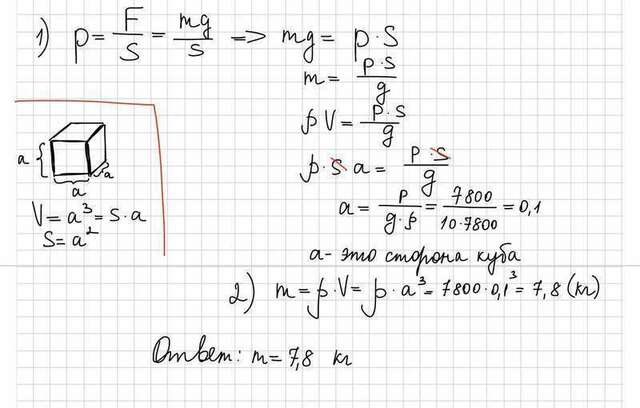 1) p = F/S = mg/S => mg = p·S
m = p·S/g
ρV = p·S/g
ρ·S·a = p·S/g
a = p/(g·ρ) = 7800/(10·7800) = 0,1
a - это сторона куба
a
a
a
V = a³ = S·a
S = a²
2) m = ρ·V = ρ·a³ = 7800·0,1³ = 7,8 (кг)
Ответ: m = 7,8 кг